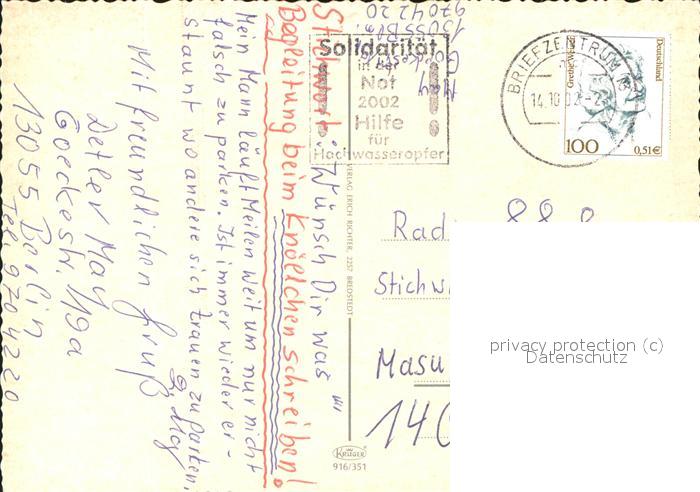 Stichwort: „Wünsch Dir was"
Begleitung beim Knöllchen schreiben!
Mein Mann läuft Meilen weit um nur nicht
falsch zu parken. Ist immer wieder er-
staunt wo andere sich trauen zu parken.
Mit freundlichen Gruß
D. May
Detlev May
Goeckestr. 119a
13055 Berlin
Tel. 9704220
May
13055 Bln.
9704220
Solidarität
in der
Not
2002
Hilfe
für
Hochwasseropfer
BRIEFZENTRUM
14.10.02
Grethe Weiser
Deutschland
100
0,51€
VERLAG ERICH RICHTER, 2257 BREDSTEDT
KRÜGER
916/351
Radi
88.8
Stichw
Masu
140
privacy protection (c)
Datenschutz